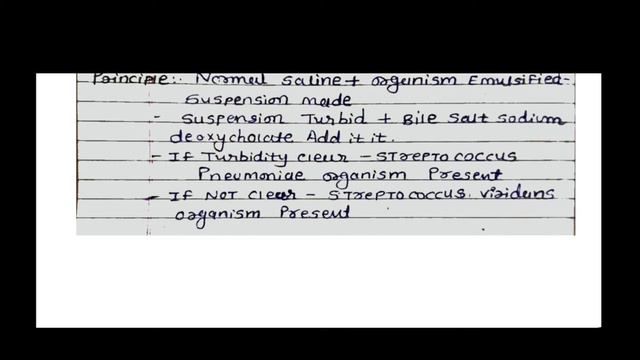 Principle:- Normal saline + organism Emulsified-
Suspension made
- Suspension Turbid + Bile salt sodium
deoxycholate Add it it.
- If Turbidity clear - STREPTOCOCCUS
Pneumoniae organism Present
- If NOT clear - STREPTOCOCCUS. viridans
organism Present